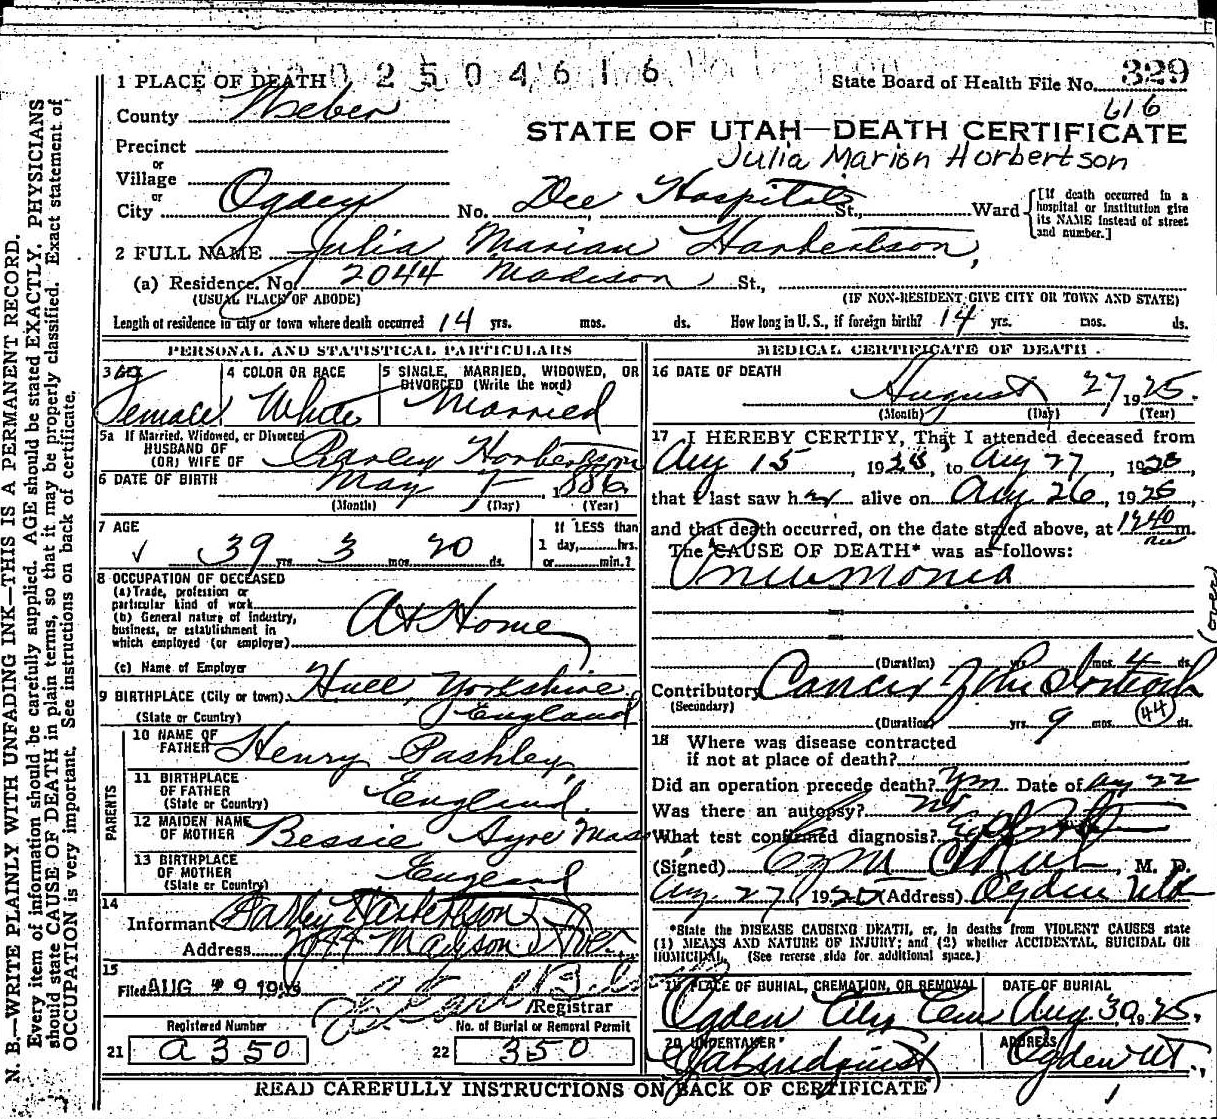 1 PLACE OF DEATH 02504616
State Board of Health File No. 329
616
County Weber
STATE OF UTAH—DEATH CERTIFICATE
Precinct
Julia Marion Horbertson
or
Village
or
City Ogden No. Dee Hospital St., Ward [If death occurred in a hospital or institution give its NAME instead of street and number.]
2 FULL NAME Julia Marian Harbertson,
(a) Residence. No. 2044 Madison St.,
(USUAL PLACE OF ABODE) (IF NON-RESIDENT GIVE CITY OR TOWN AND STATE)
Length of residence in city or town where death occurred 14 yrs. mos. ds. How long in U. S., if foreign birth? 14 yrs. mos. ds.
PERSONAL AND STATISTICAL PARTICULARS
3 SEX Female
4 COLOR OR RACE White
5 SINGLE, MARRIED, WIDOWED, OR DIVORCED (Write the word) Married
5a If Married, Widowed, or Divorced
HUSBAND OF
(OR) WIFE OF Charley Horbertson
6 DATE OF BIRTH May 7, 1886
(Month) (Day) (Year)
7 AGE
If LESS than
✓ 39 yrs. 3 mos. 20 ds. 1 day, hrs.
or min.?
8 OCCUPATION OF DECEASED
(a) Trade, profession or
particular kind of work
(b) General nature of industry,
business, or establishment in
which employed (or employer) At Home
(c) Name of Employer
9 BIRTHPLACE (City or town). Hull, Yorkshire
(State or Country) England
PARENTS
10 NAME OF FATHER Henry Pashley
11 BIRTHPLACE OF FATHER (State or Country) England
12 MAIDEN NAME OF MOTHER Bessie Ayre Mass
13 BIRTHPLACE OF MOTHER (State or Country) England
14
Informant Charley Harbertson
Address 2044 Madison Ave.
15
Filed AUG 29 19
Registrar
Registered Number No. of Burial or Removal Permit
21 a350 22 350
MEDICAL CERTIFICATE OF DEATH.
16 DATE OF DEATH
August 27, 1925.
(Month) (Day) (Year)
17 I HEREBY CERTIFY, That I attended deceased from
Aug 15, 1925, to Aug 27, 1925
that I last saw her alive on Aug 26, 1925,
and that death occurred, on the date stated above, at 1240 m.
The CAUSE OF DEATH* was as follows:
Pneumonia
(over)
(Duration) yrs. mos. 4 ds.
Contributory Cancer of the Stomach
(Secondary)
(Duration) yrs. 9 mos. 44 ds.
18 Where was disease contracted
if not at place of death?
Did an operation precede death? Yes Date of Aug 22
Was there an autopsy? No
What test confirmed diagnosis?
(Signed) M. D.
Aug 27, 1925 (Address) Ogden Utah
*State the DISEASE CAUSING DEATH, or, in deaths from VIOLENT CAUSES state
(1) MEANS AND NATURE OF INJURY; and (2) whether ACCIDENTAL, SUICIDAL OR
HOMICIDAL. (See reverse side for additional space.)
19 PLACE OF BURIAL, CREMATION, OR REMOVAL DATE OF BURIAL
Ogden City Cem Aug. 30, 1925.
20 UNDERTAKER ADDRESS
Lindquist Ogden UT.
READ CAREFULLY INSTRUCTIONS ON BACK OF CERTIFICATE
N. B.—WRITE PLAINLY WITH UNFADING INK—THIS IS A PERMANENT RECORD.
Every item of information should be carefully supplied. AGE should be stated EXACTLY. PHYSICIANS
should state CAUSE OF DEATH in plain terms, so that it may be properly classified. Exact statement of
OCCUPATION is very important. See instructions on back of certificate.